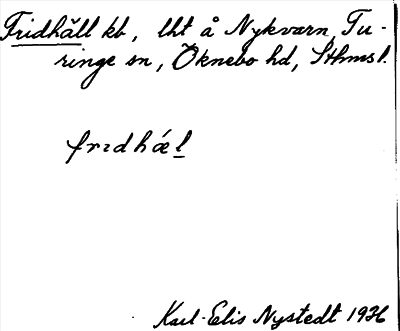 Fridhäll kb, lht å Nykvarn, Tu-
ringe sn, Öknebo hd, Sthms l.
frɪdhǽl
Karl-Elis Nystedt 1926